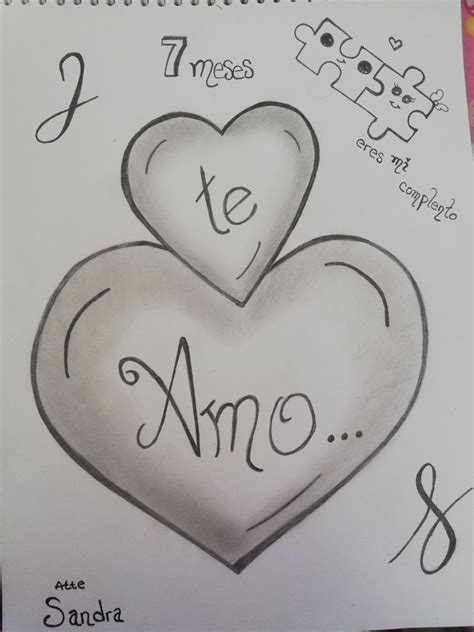 J
7 meses
eres mi
complento
te
Amo...
S
Atte
Sandra